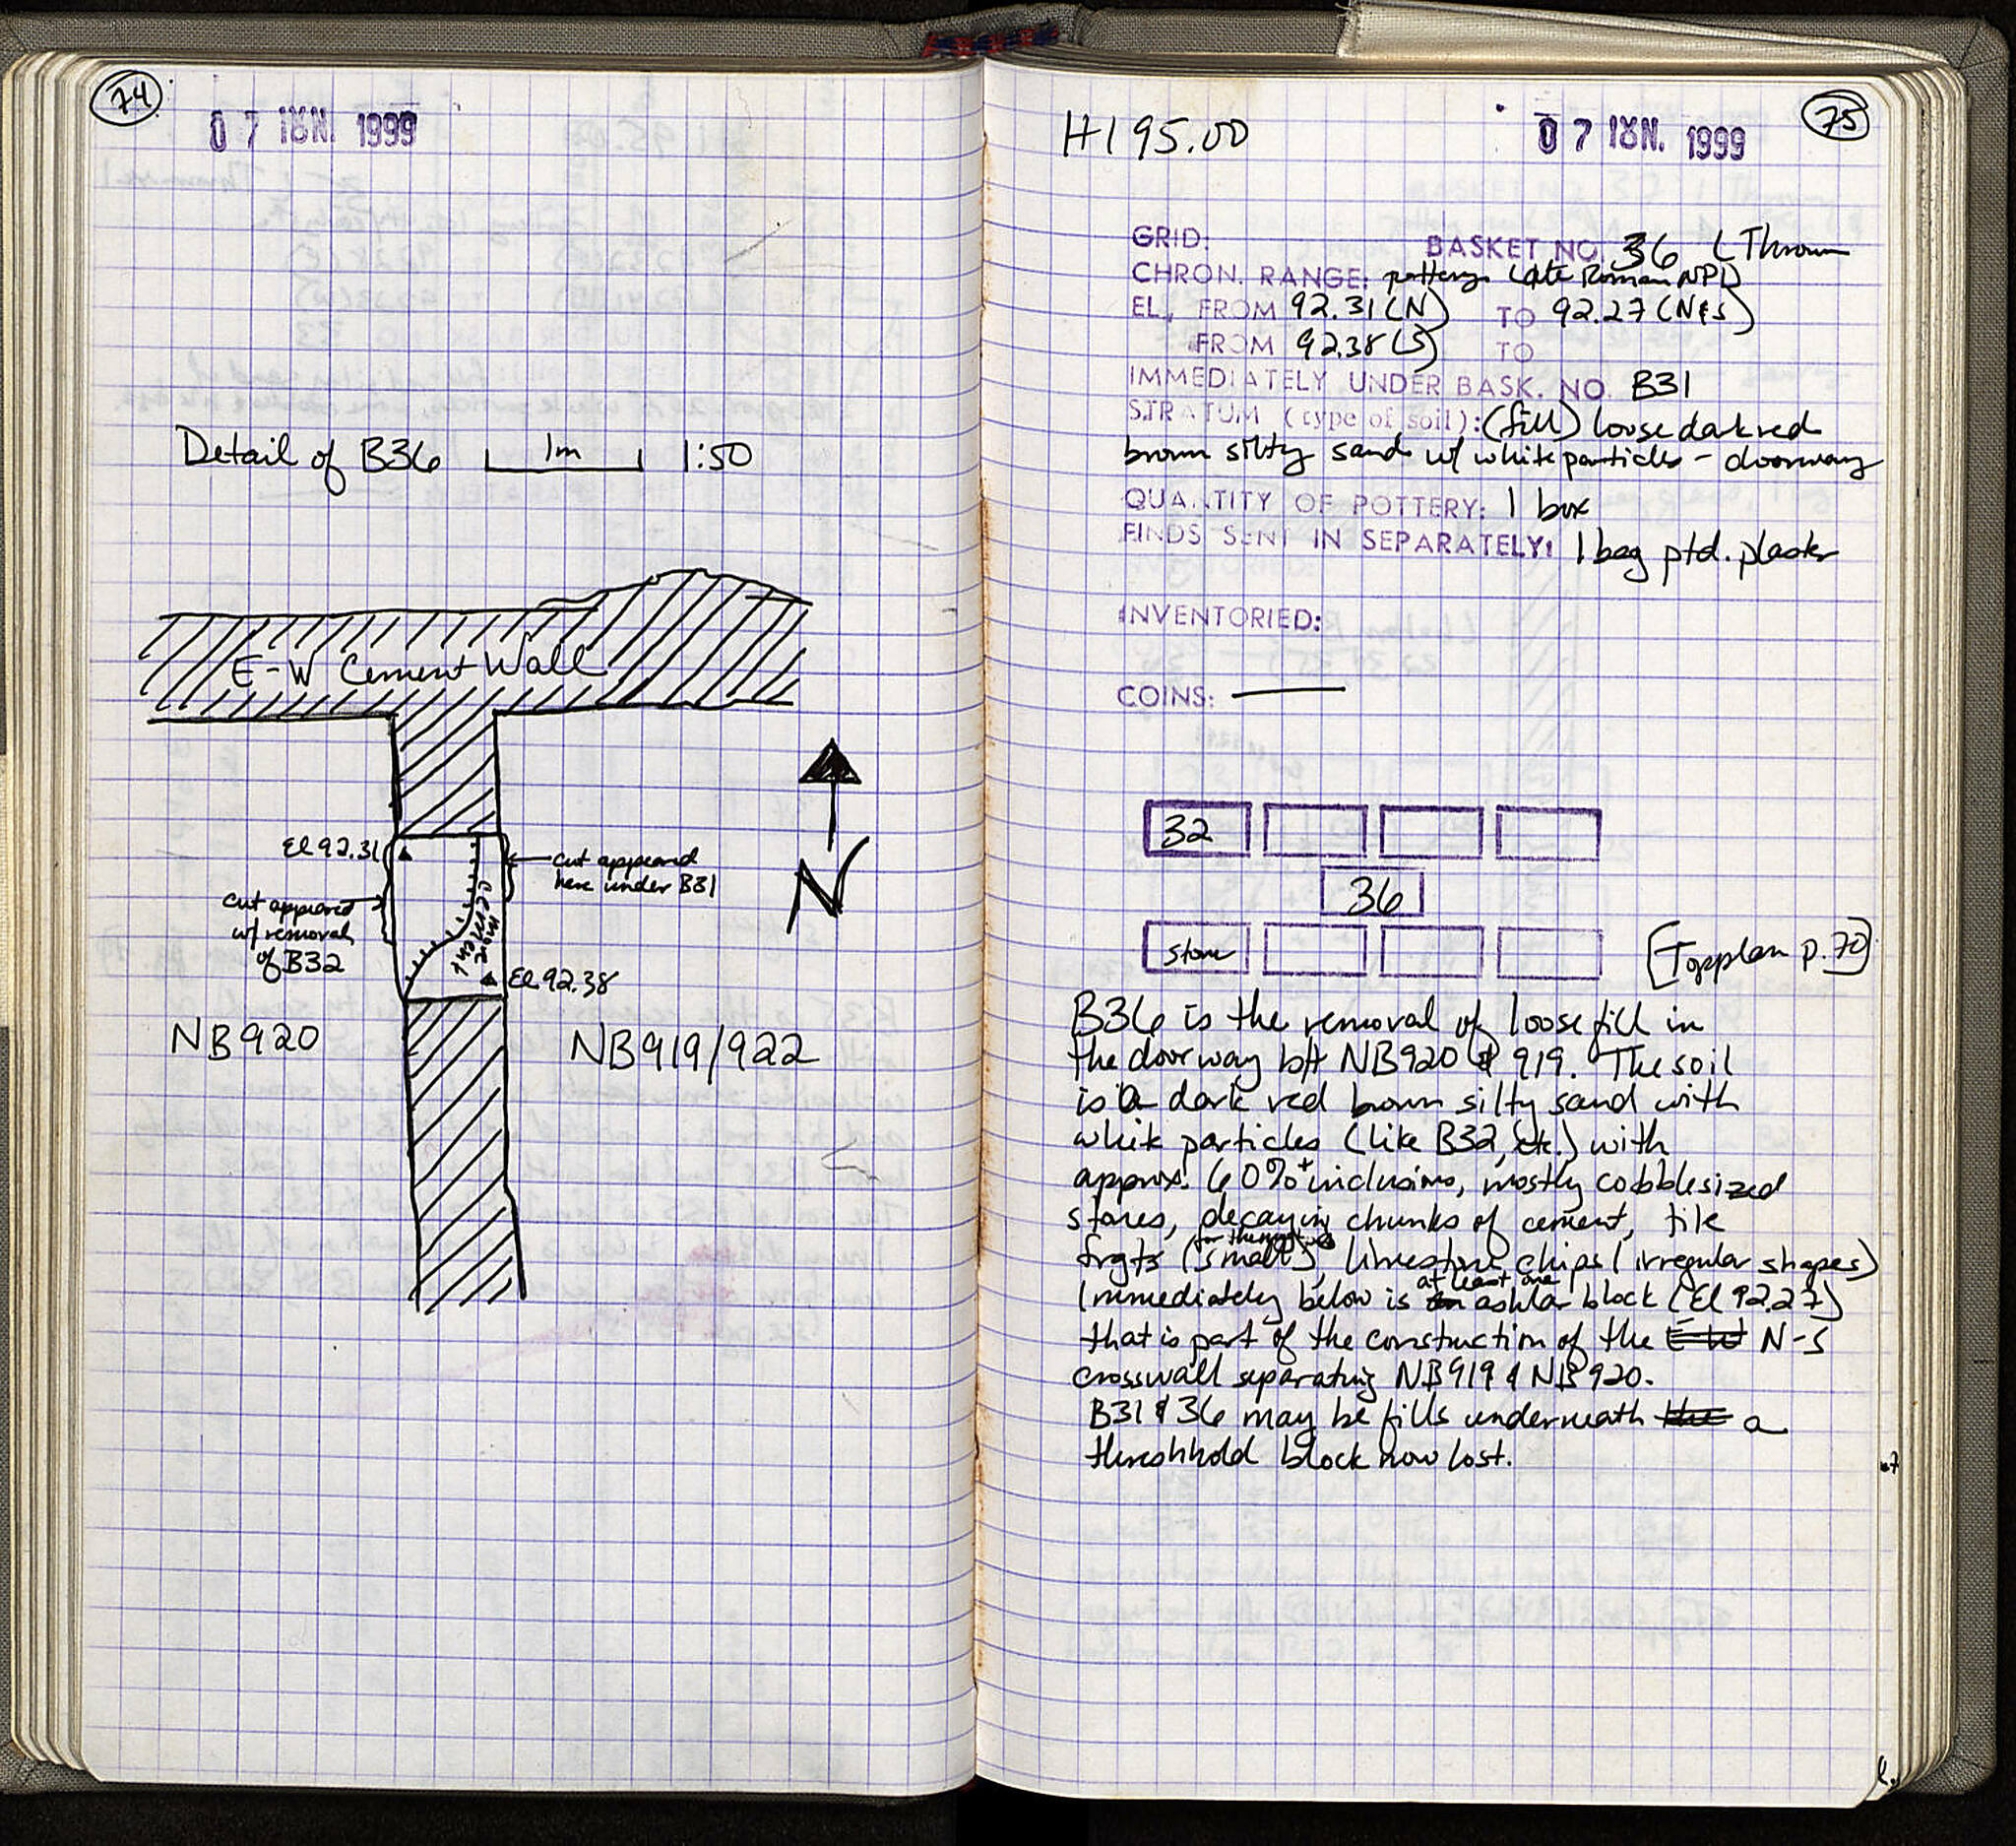 74
07 ΙΟΥΝ. 1999
Detail of B36 1m 1:50
E-W Cement Wall
El 92.31
cut appeared
here under B31
cut appeared
w/ removal
of B32
more
cement
El 92.38
N
NB920 NB919/922
75
H195.00 07 ΙΟΥΝ. 1999
GRID: BASKET NO. 36 (Thrown
CHRON. RANGE: pottery Late Roman NPD
EL. FROM 92.31 (N) TO 92.27 (N&S)
FROM 92.38 (S) TO
IMMEDIATELY UNDER BASK. NO. B31
STRATUM (type of soil): (fill) loose dark red
brown silty sand w/ white particles - doorway
QUANTITY OF POTTERY: 1 box
FINDS SENT IN SEPARATELY: 1 bag ptd. plaster
INVENTORIED:
COINS: —
32
36
stone
[Topplan p. 70]
B36 is the removal of loose fill in
the doorway b/t NB920 & 919. The soil
is a dark red brown silty sand with
white particles (like B32, etc.) with
approx. 60%+ inclusions, mostly cobblesized
stones, decaying chunks of cement, tile
frgts (small for the most), limestone chips (irregular shapes)
Immediately below is at least one ashlar block (El 92.27)
that is part of the construction of the E-W N-S
crosswall separating NB919 & NB920.
B31 & 36 may be fills underneath the a
threshhold block now lost.